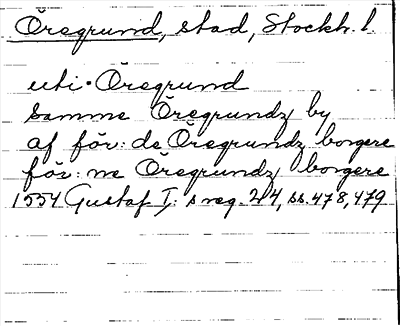 Öregrund, stad, Stockh. l.
uti Öregrund
samme Öregrundz by
af för:de Öregrundz borgere
för:ne Öregrundz borgere
1554 Gustaf I:s reg. 24, ss. 478, 479